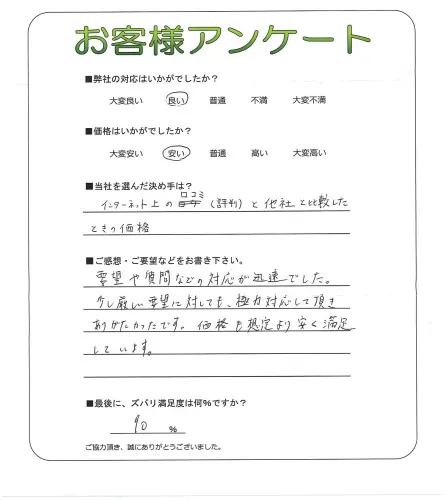 お客様アンケート
■弊社の対応はいかがでしたか?
大変良い 良い 普通 不満 大変不満
■価格はいかがでしたか?
大変安い 安い 普通 高い 大変高い
■当社を選んだ決め手は?
口コミ
インターネット上の (評判) と他社と比較した
ときの価格
■ご感想・ご要望などをお書き下さい。
要望や質問などの対応が迅速でした。
少し厳しい要望に対しても、極力対応して頂き
ありがたかったです。価格も想定より安く満足
しています。
■最後に、ズバリ満足度は何%ですか?
90 %
ご協力頂き、誠にありがとうございました。